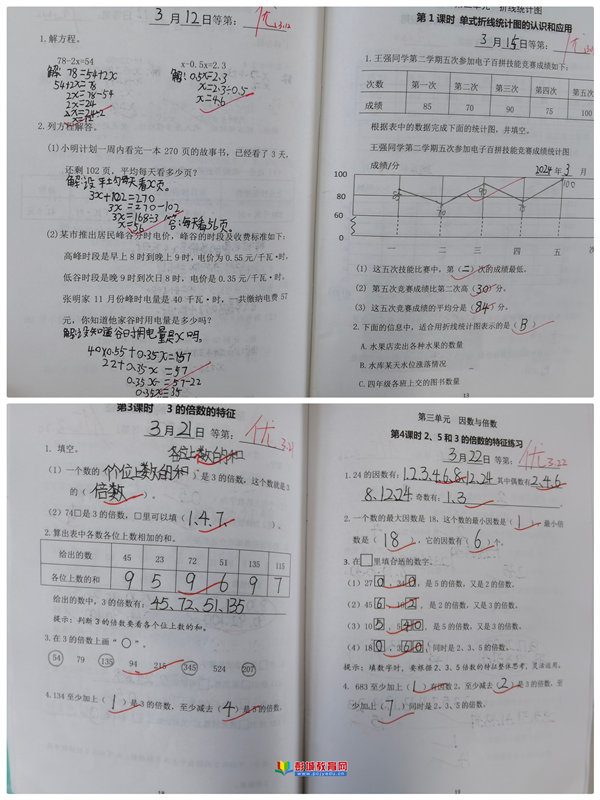 3月12日等第: 优 3.12
1.解方程。
78-2x=54
x-0.5x=2.3
解: 78=54+2x
54+2x=78
2x=78-54
2x=24
解: 0.5x=2.3
x=2.3÷0.5
x=4.6
2.列方程解答。
(1)小明计划一周内看完一本 270 页的故事书,已经看了 3 天,
还剩 102 页。平均每天看多少页?
解:设平均每天看x页。
3x+102=270
3x=270-102
3x=168÷3
x=56
答:每天看56页。
(2)某市推出居民峰谷分时电价,峰谷的时段及收费标准如下:
高峰时段是早上 8 时到晚上 9 时,电价为 0.55 元/千瓦·时,
低谷时段是晚 9 时到次日 8 时,电价是 0.35 元/千瓦·时,
张明家 11 月份峰时电量是 40 千瓦·时,一共缴纳电费 57
元,你知道他家谷时用电量是多少吗?
40×0.55+0.35x=57
22+0.35x=57
0.35x=57-22
0.35x=35
折线统计图
第1课时 单式折线统计图的认识和应用
3月15日等第: 优
1.王强同学第二学期五次参加电子百拼技能竞赛成绩如下:
次数 第一次 第二次 第三次 第四次 第五次
成绩 85 70 90 75 100
根据表中的数据完成下面的统计图,并填空。
王强同学第二学期五次参加电子百拼技能竞赛成绩统计
成绩/分 2024年3月
100
80
60
0
一 二 三 四 五 次
(1)这五次技能比赛中,第(二)次的成绩最低。
(2)第五次竞赛成绩比第二次高(30)分。
(3)这五次竞赛成绩的平均分是(84)分。
2.下面的信息中,适合用折线统计图表示的是(B)
A.水果店卖出各种水果的数量
B.水库某天水位涨落情况
C.四年级各班上交的图书数量
13
第3课时 3 的倍数的特征
3月21日等第: 优 3.21
1.填空。
各位上数的和
(1)一个数的(个位上数的和)是3的倍数,这个数就是3
的(倍数)。
(2)74□是3的倍数,□里可以填(1、4、7)。
2.算出表中各数各位上数相加的和。
给出的数 45 23 72 51 135 115
各位上数的和 9 5 9 6 9 7
给出的数中,3 的倍数有: 45、72、51、135
提示:判断 3 的倍数要看各个位上数的和。
3.在 3 的倍数上画“○”。
54 79 135 94 215 345 524 207
4.134 至少加上(1)是 3 的倍数,至少减去(4)是 3 的倍数。
第三单元 因数与倍数
第4课时 2、5 和 3 的倍数的特征练习
3月22日等第: 优 3.22
1.24 的因数有: 1.2.3.4.6.8.12.24 其中偶数有 2.4.6
8.12.24 奇数有: 1.3
2.一个数的最大因数是 18,这个数的最小因数是(1),最小倍
数是(18),它的因数有(6)个。
3.在□里填合适的数字。
(1)27 0、34 0,是 5 的倍数,又是 2 的倍数。
(2)45 6、16 2,是 2 的倍数,又是 3 的倍数。
(3)10 5、5 4 0,是 5 的倍数,又是 3 的倍数。
(4)18 0、3 6 0,同时是 2、3、5 的倍数。
提示:填数字时,要根据 2、3、5 倍数的特征整体思考,灵活运用。
4. 683 至少加上(1)有因数 2,至少减去(2)是 3 的倍数,至
少加上(7)同时是 2、3、5 的倍数。
彭城教育网
www.pcjyedu.cn